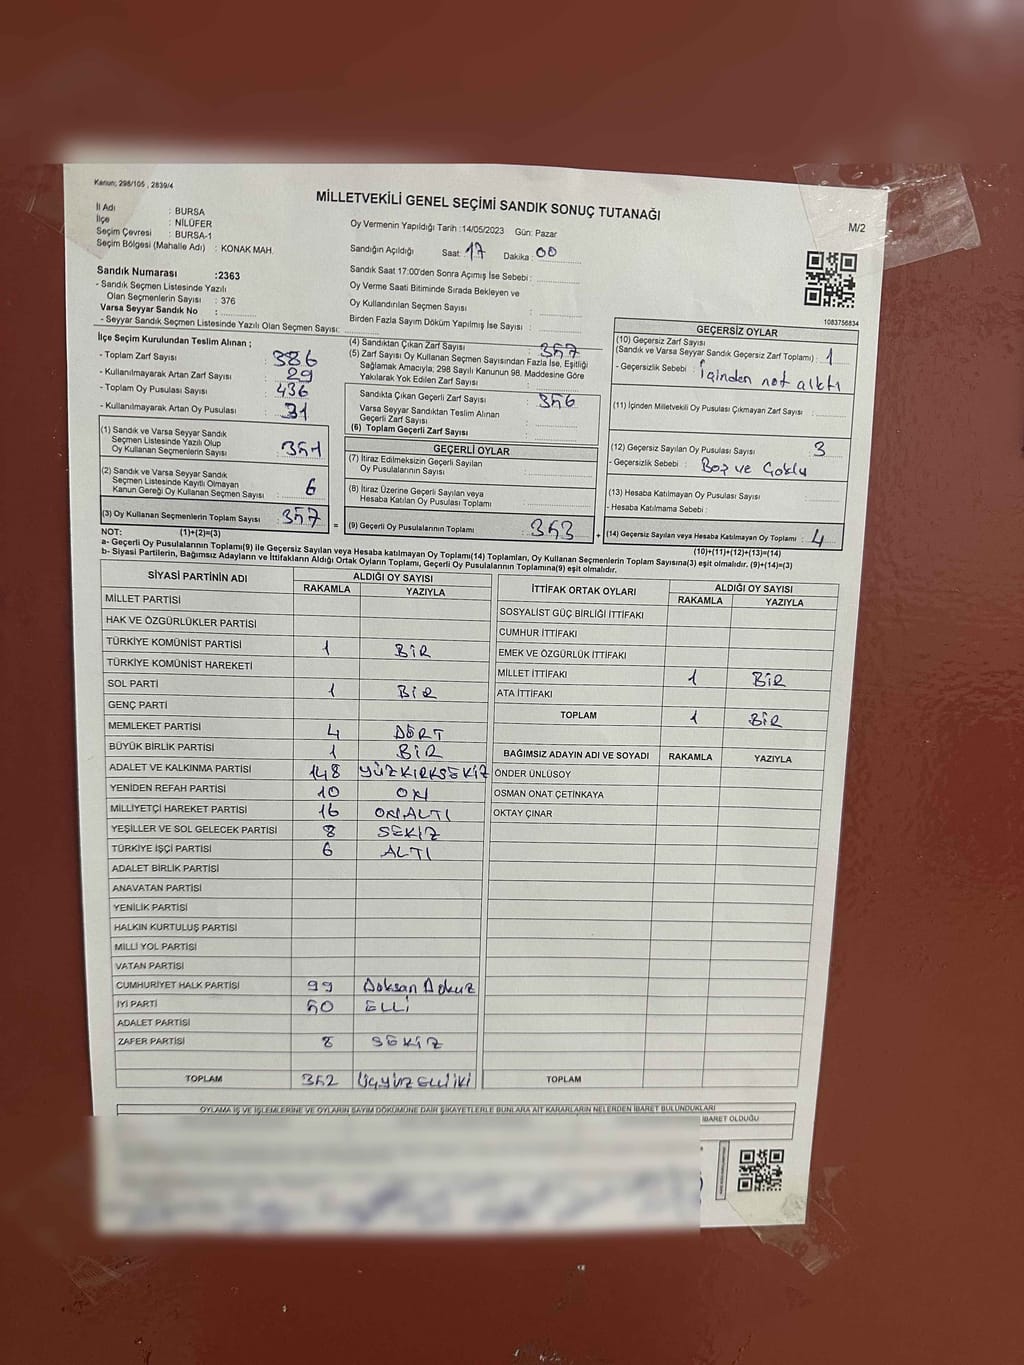 Kanun; 298/105 , 2839/4
MİLLETVEKİLİ GENEL SEÇİMİ SANDIK SONUÇ TUTANAĞI
M/2
İl Adı : BURSA
İlçe : NİLÜFER
Seçim Çevresi : BURSA-1
Seçim Bölgesi (Mahalle Adı) : KONAK MAH.
Oy Vermenin Yapıldığı Tarih :14/05/2023 Gün: Pazar
Sandığın Açıldığı Saat: 17 Dakika : 00
Sandık Saat 17:00'den Sonra Açımış İse Sebebi :
Oy Verme Saati Bitiminde Sırada Bekleyen ve
Oy Kullandırılan Seçmen Sayısı :
Birden Fazla Sayım Döküm Yapılmış İse Sayısı :
Sandık Numarası :2363
- Sandık Seçmen Listesinde Yazılı
Olan Seçmenlerin Sayısı : 376
Varsa Seyyar Sandık No :
- Seyyar Sandık Seçmen Listesinde Yazılı Olan Seçmen Sayısı:
1083756834
İlçe Seçim Kurulundan Teslim Alınan ;
- Toplam Zarf Sayısı : 386
- Kullanılmayarak Artan Zarf Sayısı : 29
- Toplam Oy Pusulası Sayısı : 436
- Kullanılmayarak Artan Oy Pusulası : 31
(1) Sandık ve Varsa Seyyar Sandık
Seçmen Listesinde Yazılı Olup
Oy Kullanan Seçmenlerin Sayısı : 351
(2) Sandık ve Varsa Seyyar Sandık
Seçmen Listesinde Kayıtlı Olmayan
Kanun Gereği Oy Kullanan Seçmen Sayısı : 6
(3) Oy Kullanan Seçmenlerin Toplam Sayısı : 357
(1)+(2)=(3)
(4) Sandıktan Çıkan Zarf Sayısı : 357
(5) Zarf Sayısı Oy Kullanan Seçmen Sayısından Fazla İse, Eşitliği
Sağlamak Amacıyla; 298 Sayılı Kanunun 98. Maddesine Göre
Yakılarak Yok Edilen Zarf Sayısı :
Sandıkta Çıkan Geçerli Zarf Sayısı : 356
Varsa Seyyar Sandıktan Teslim Alınan
Geçerli Zarf Sayısı :
(6) Toplam Geçerli Zarf Sayısı :
GEÇERLİ OYLAR
(7) İtiraz Edilmeksizin Geçerli Sayılan
Oy Pusulalarının Sayısı :
(8) İtiraz Üzerine Geçerli Sayılan veya
Hesaba Katılan Oy Pusulası Toplamı :
= (9) Geçerli Oy Pusulalarının Toplamı : 353
GEÇERSİZ OYLAR
(10) Geçersiz Zarf Sayısı
(Sandık ve Varsa Seyyar Sandık Geçersiz Zarf Toplamı) : 1
- Geçersizlik Sebebi : İçinden not çıktı
(11) İçinden Milletvekili Oy Pusulası Çıkmayan Zarf Sayısı :
(12) Geçersiz Sayılan Oy Pusulası Sayısı : 3
- Geçersizlik Sebebi : Boş ve Çoklu
(13) Hesaba Katılmayan Oy Pusulası Sayısı :
- Hesaba Katılmama Sebebi :
+ (14) Geçersiz Sayılan veya Hesaba Katılmayan Oy Toplamı : 4
(10)+(11)+(12)+(13)=(14)
NOT:
a- Geçerli Oy Pusulalarının Toplamı(9) ile Geçersiz Sayılan veya Hesaba katılmayan Oy Toplamı(14) Toplamları, Oy Kullanan Seçmenlerin Toplam Sayısına(3) eşit olmalıdır. (9)+(14)=(3)
b- Siyasi Partilerin, Bağımsız Adayların ve İttifakların Aldığı Ortak Oyların Toplamı, Geçerli Oy Pusulalarının Toplamına(9) eşit olmalıdır.
SİYASİ PARTİNİN ADI ALDIĞI OY SAYISI
RAKAMLA YAZIYLA
MİLLET PARTİSİ
HAK VE ÖZGÜRLÜKLER PARTİSİ
TÜRKİYE KOMÜNİST PARTİSİ 1 BİR
TÜRKİYE KOMÜNİST HAREKETİ
SOL PARTİ 1 BİR
GENÇ PARTİ
MEMLEKET PARTİSİ 4 DÖRT
BÜYÜK BİRLİK PARTİSİ 1 BİR
ADALET VE KALKINMA PARTİSİ 148 YÜZKIRKSEKİZ
YENİDEN REFAH PARTİSİ 10 ON
MİLLİYETÇİ HAREKET PARTİSİ 16 ONALTI
YEŞİLLER VE SOL GELECEK PARTİSİ 8 SEKİZ
TÜRKİYE İŞÇİ PARTİSİ 6 ALTI
ADALET BİRLİK PARTİSİ
ANAVATAN PARTİSİ
YENİLİK PARTİSİ
HALKIN KURTULUŞ PARTİSİ
MİLLİ YOL PARTİSİ
VATAN PARTİSİ
CUMHURİYET HALK PARTİSİ 99 Doksan Dokuz
İYİ PARTİ 50 ELLİ
ADALET PARTİSİ
ZAFER PARTİSİ 8 SEKİZ
TOPLAM 352 Üçyüz Elli iki
İTTİFAK ORTAK OYLARI ALDIĞI OY SAYISI
RAKAMLA YAZIYLA
SOSYALİST GÜÇ BİRLİĞİ İTTİFAKI
CUMHUR İTTİFAKI
EMEK VE ÖZGÜRLÜK İTTİFAKI
MİLLET İTTİFAKI 1 BİR
ATA İTTİFAKI
TOPLAM 1 BİR
BAĞIMSIZ ADAYIN ADI VE SOYADI RAKAMLA YAZIYLA
ÖNDER ÜNLÜSOY
OSMAN ONAT ÇETİNKAYA
OKTAY ÇINAR
TOPLAM
OYLAMA İŞ VE İŞLEMLERİNE VE OYLARIN SAYIM DÖKÜMÜNE DAİR ŞİKAYETLERLE BUNLARA AİT KARARLARIN NELERDEN İBARET BULUNDUKLARI
İBARET OLDUĞU